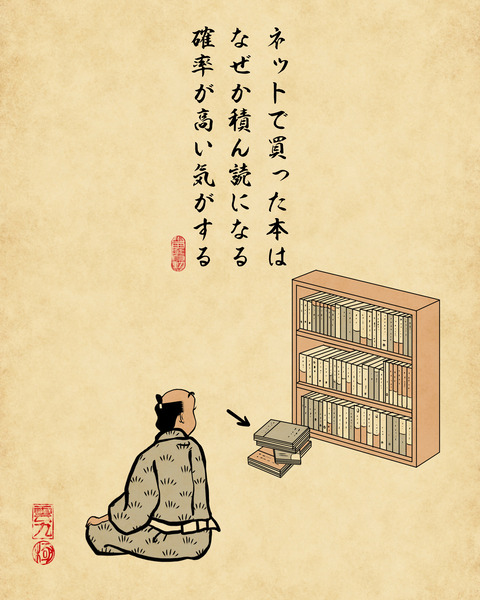 ネットで買った本は
なぜか積ん読になる
確率が高い気がする